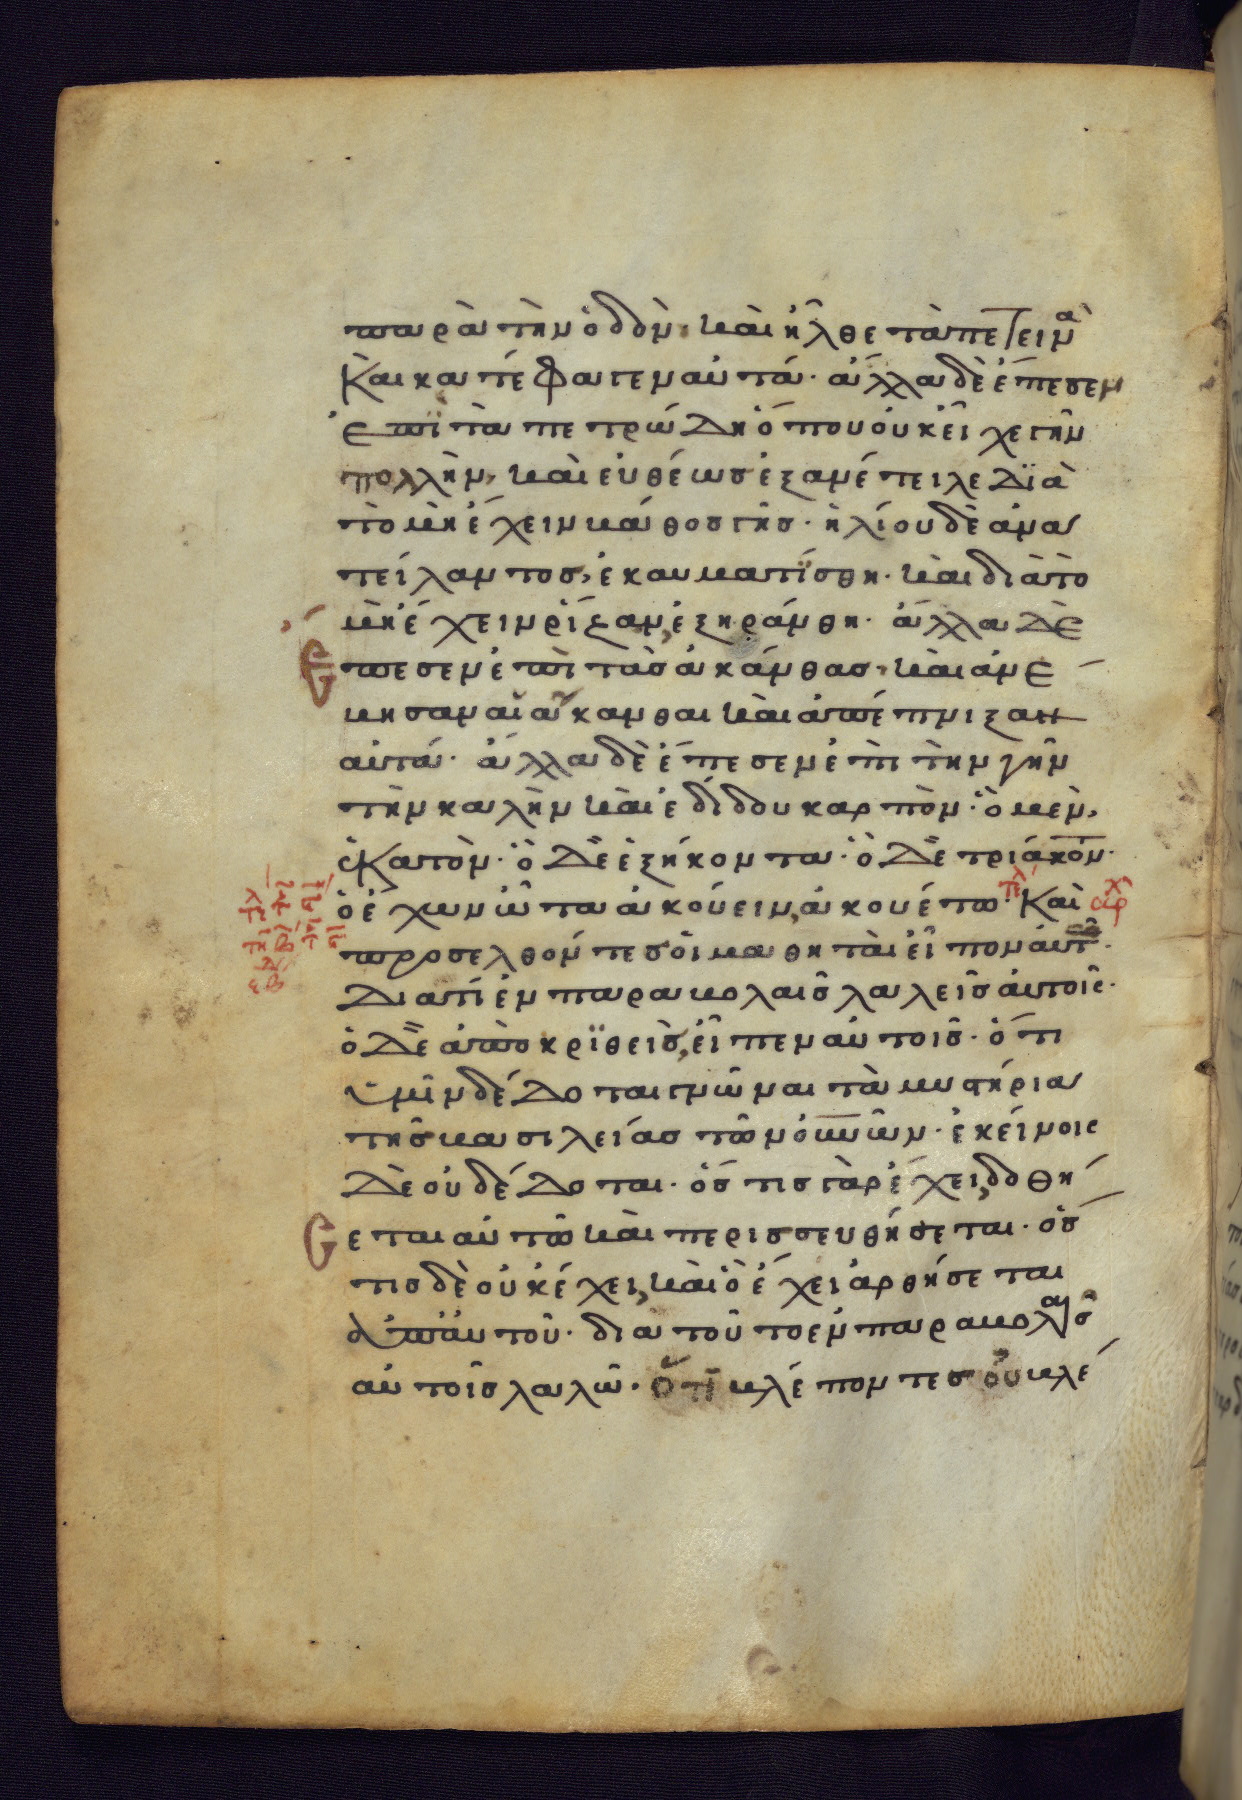 παρὰ τὴν ὁδὸν· καὶ ἦλθε τὰ πετεινὰ
Καὶ κατέφαγεν αὐτά· ἄλλα δὲ ἔπεσεν
ἐπὶ τὰ πετρώδη ὅπου οὐκ εἶχε γῆν
πολλὴν, καὶ εὐθέως ἐξανέτειλε διὰ
τὸ μὴ ἔχειν βάθος γῆς· ἡλίου δὲ ἀνα
τείλαντος, ἐκαυματίσθη· καὶ διὰ τὸ
μὴ ἔχειν ῥίζαν, ἐξηράνθη· ἄλλα δὲ
ἔπεσεν ἐπὶ τὰς ἀκάνθας· καὶ ἀνέ
βησαν αἱ ἄκανθαι καὶ ἀπέπνιξαν
αὐτά· ἄλλα δὲ ἔπεσεν ἐπὶ τὴν γῆν
τὴν καλὴν καὶ ἐδίδου καρπὸν· ὃ μὲν,
ἑκατὸν· ὃ δὲ ἑξήκοντα· ὃ δὲ τριάκον·
ὁ ἔχων ὦτα ἀκούειν, ἀκουέτω· Καὶ
προσελθόντες οἱ μαθηταὶ εἶπον αὐτ·
Διατί ἐν παραβολαῖς λαλεῖς αὐτοῖς·
ὁ δὲ ἀποκριθεὶς, εἶπεν αὐτοῖς· ὅτι
ὑμῖν δέδοται γνῶναι τὰ μυστήρια
τῆς βασιλείας τῶν οὐνῶν· ἐκείνοις
δὲ οὐ δέδοται· ὅστις γὰρ ἔχει, δοθή
σεται αὐτῶ καὶ περισσευθήσεται· ὅσ
τις δὲ οὐκ έχει, καὶ ὃ ἔχει ἀρθήσεται
ἀπ' αὐτοῦ· διατοῦτο ἐν παραβολαῖς
αὐτοῖς λαλῶ· ὅτι βλέποντες οὐ βλέ